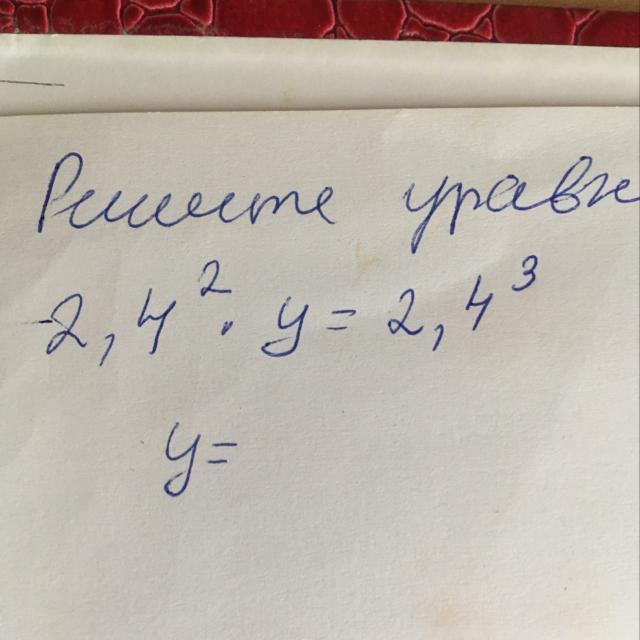 Решите уравне
-2,4² · y = 2,4³
y =